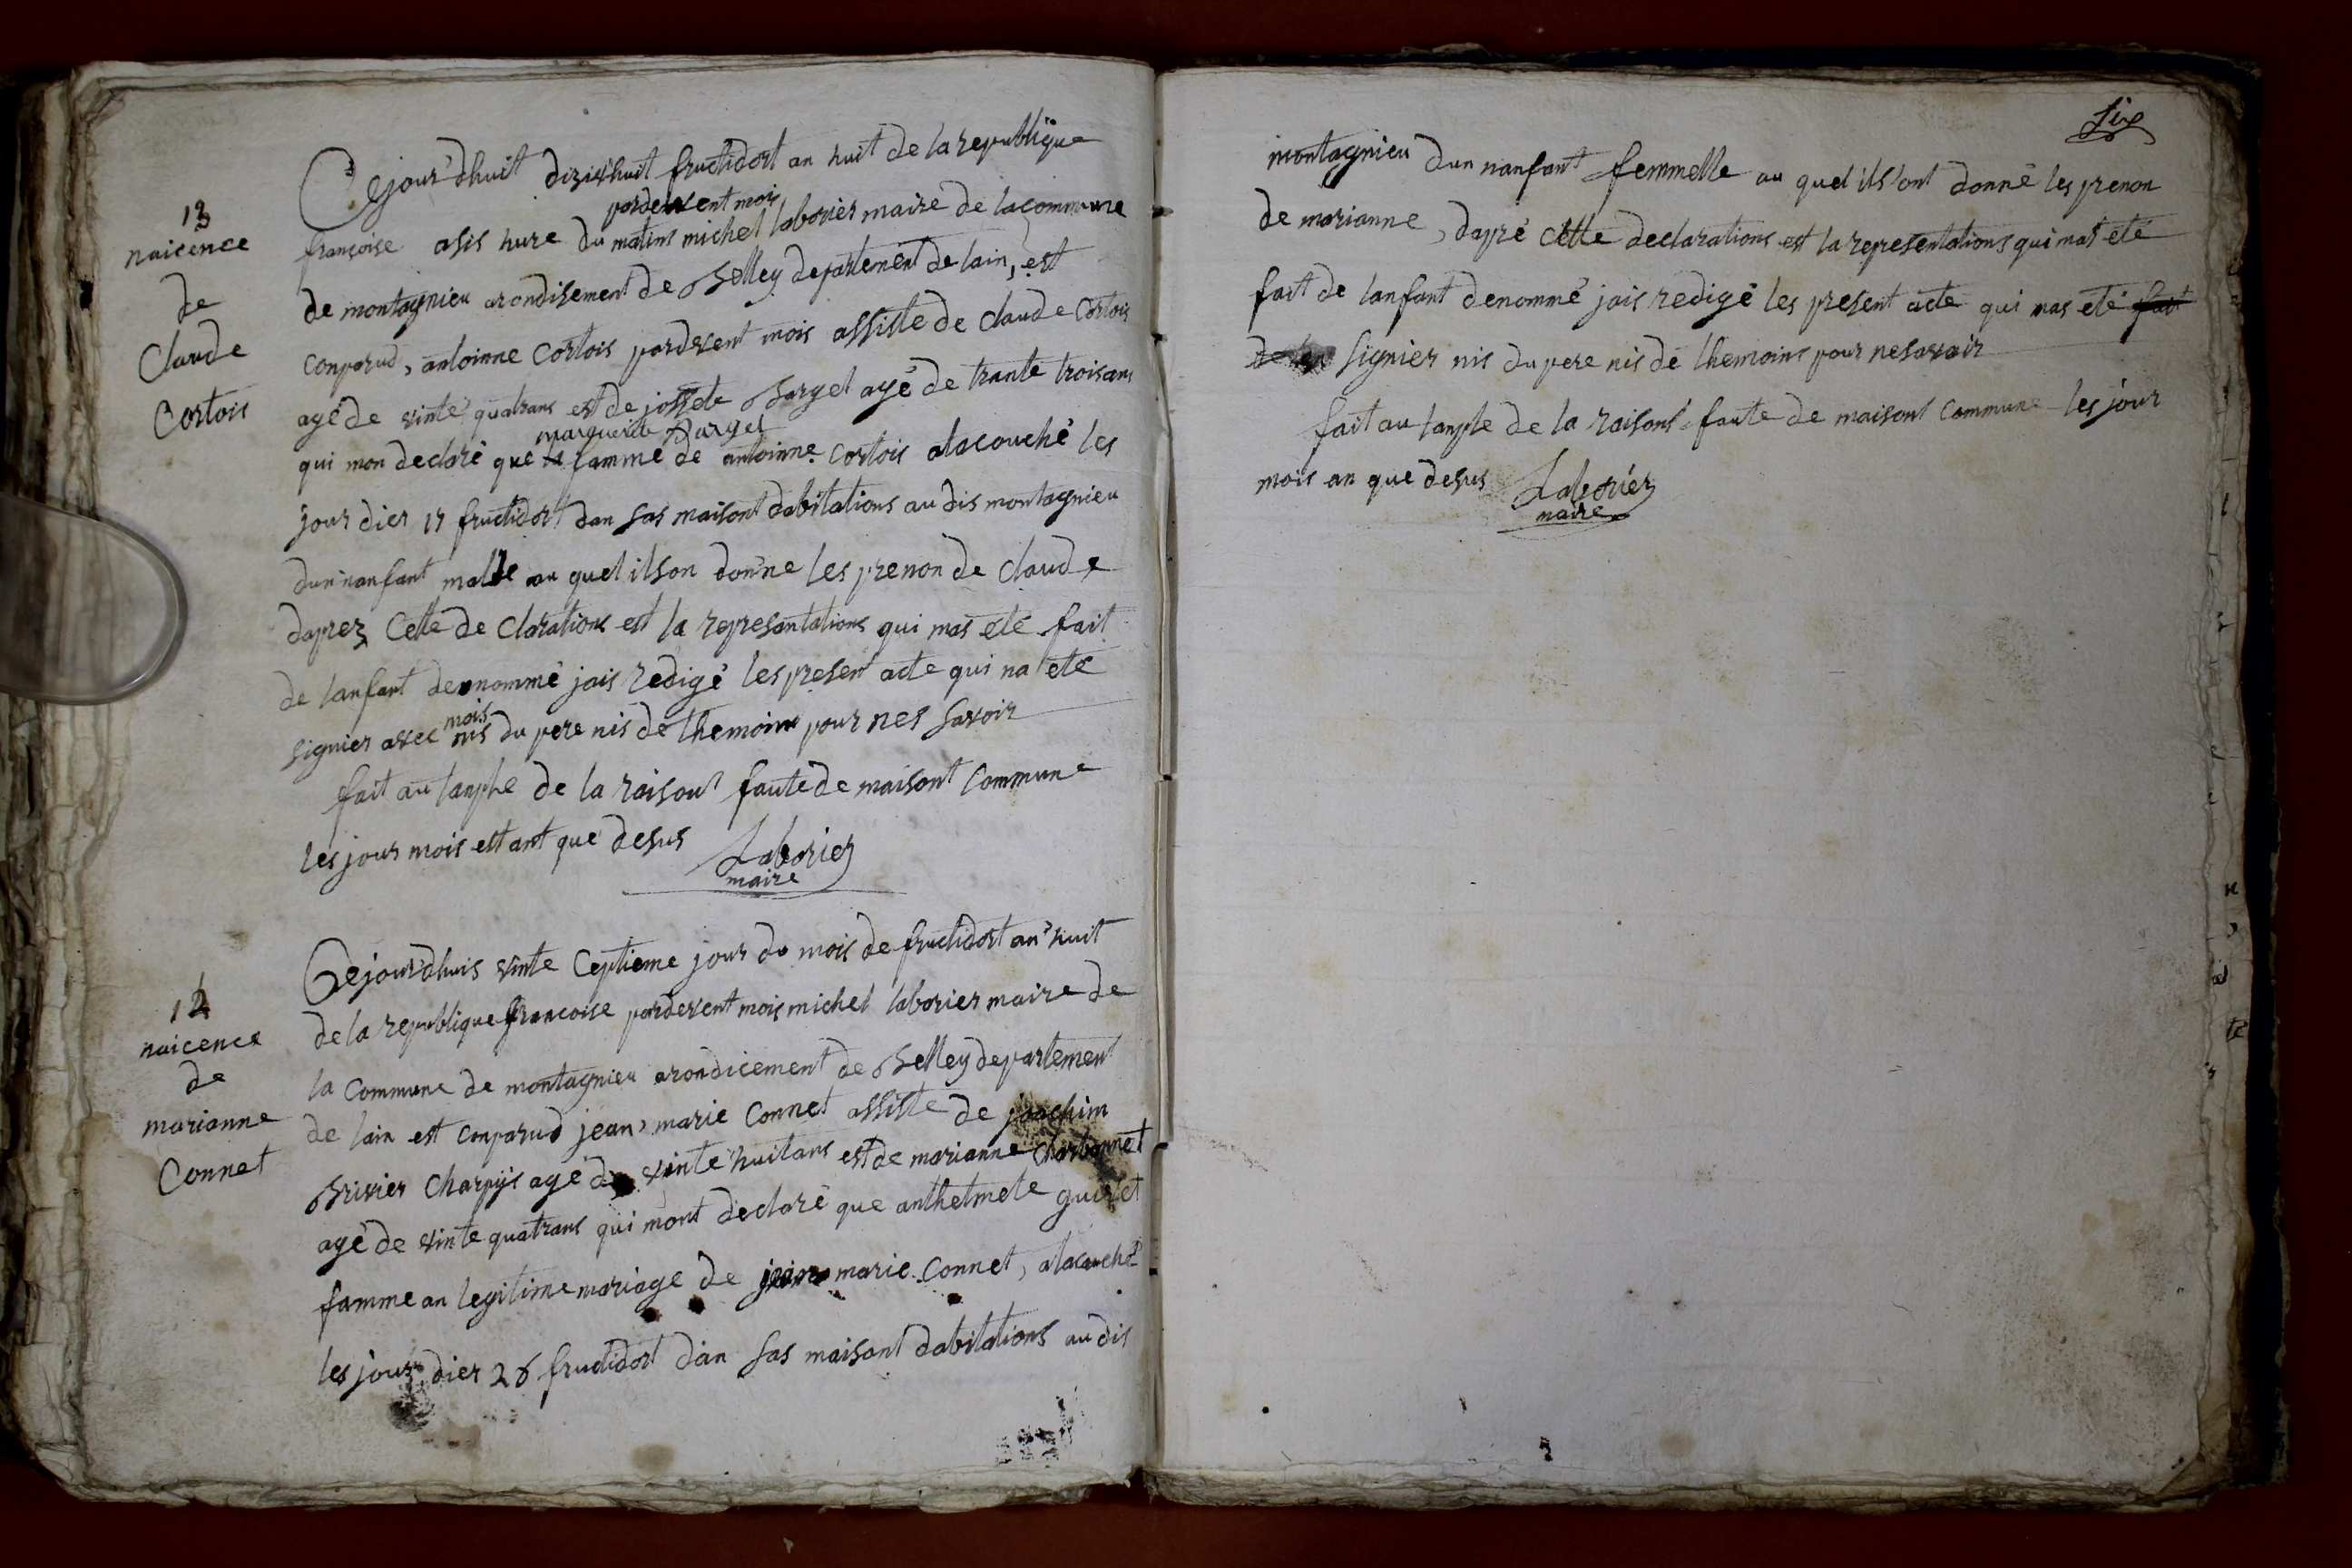 13
naicence
de
Claude
Cortois
Cejour dhuit dizishuit fructidort an huit de la republique
pardevent mois
françoise asis hure du matins michel laborier maire de lacommune
de montagnieu arondisement de Belley departement de lain, est
conparud, antoinne Cortois pardevent mois assiste de claude Cortois
agé de vinte quatrans est de josete Barget agé de trante troisans
marguerite Barget
qui mon declaré que la famme de antoinne Cortois atacouché les
jour dier 17 fructidort dan sas maisont dabitations au dis montagnieu
dun nanfant malle au quel ilson donne les prenon de claude
daprez Cette de clarations est la represantations qui mas eté fait
de lanfant denommé jais redigé les presen acte qui na eté
mois
signier avec nis du pere nis de themoins pour nes savoir
fait au tanple de la raisont faute de maisont Commune
les jour mois est ant que desus
Laborier
maire
12
naicence
de
marianne
Connet
Cejourdhuis vinte Ceptieme jour du mois de fructidort an huit
de la republique françoise pardevent mois michel laborier maire de
la Commune de montagnieu arondicement de Belley departement
de lain est conparud jean marie Connet assiste de joachim
Brivier Charpys agé de vinte huitans est de marianne Charbonnet
agé de vinte quatrans qui mont declaré que anthelmete guiret
famme an legitime mariage de jean marie Connet, atacouché
les jour dier 26 fructidort dan sas maisont dabitations au dis
six
montagnieu dun nanfant femmelle au quel ils ont donné les prenon
de marianne, dapré cette declarations est la representations qui mas eté
fait de lanfant denommé jais redigé les present acte qui nas eté fait
signier nis du pere nis de themoins pour nesavoir
fait au tanple de la raisont faute de maisont Commune les jour
mois an que desus
Laborier
maire